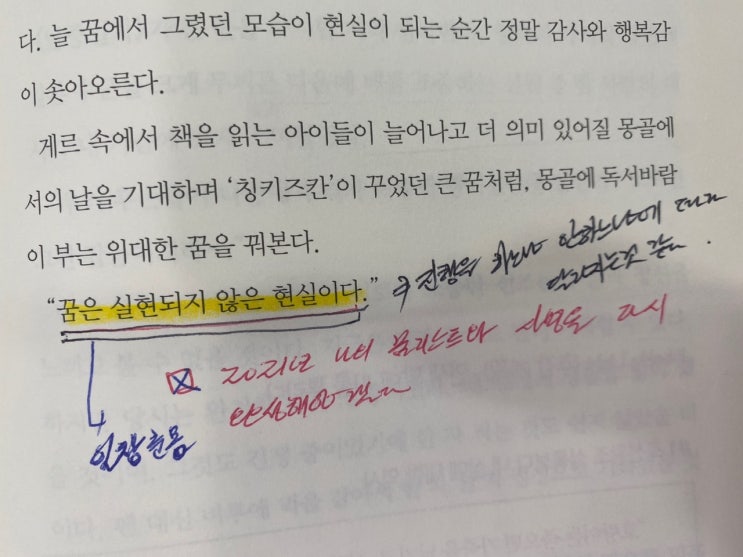 다. 늘 꿈에서 그렸던 모습이 현실이 되는 순간 정말 감사와 행복감
이 솟아오른다.
게르 속에서 책을 읽는 아이들이 늘어나고 더 의미 있어질 몽골에
서의 날을 기대하며 ‘칭키즈칸’이 꾸었던 큰 꿈처럼, 몽골에 독서바람
이 부는 위대한 꿈을 꿔본다.
“꿈은 실현되지 않은 현실이다.”
하느냐 안하느냐에 따라
달라지는것 같다.
2021년 나의 꿈리스트와 사명을 다시
일장춘몽